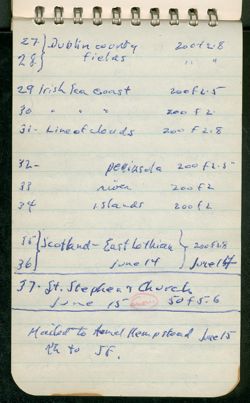 27. } Dublin county 200 f 2.8
28. } fields " "
29 Irish Sea coast 200 f 2.5
30 " " " 200 f 2
31- Line of clouds 200 f 2.8
32- peninsula 200 f 2.5
33 river 200 f 2
34 islands 200 f 2
35 } Scotland - East Lothian } 200 f 2.8
36 } June 14 } June 14
37- St. Stephen's Church
June 15 50 f 5.6
Mailed to Hemel Hempstead June 15
to SF.